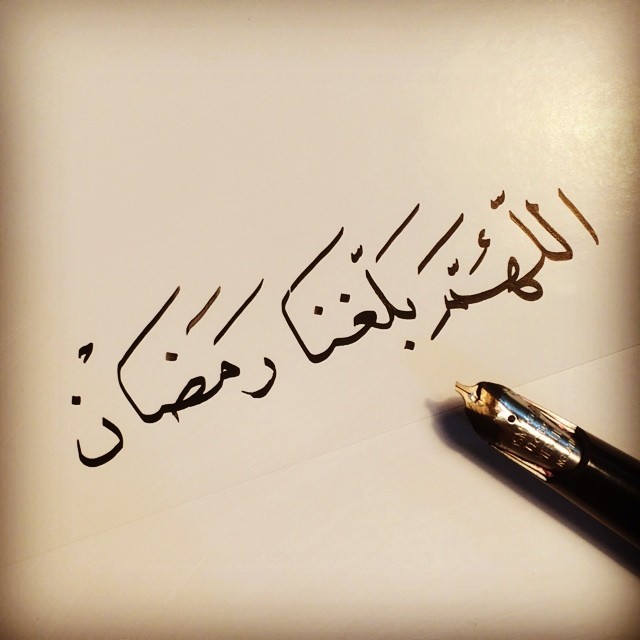 اللّهُمَّ بَلّغنا رمَضَانْ